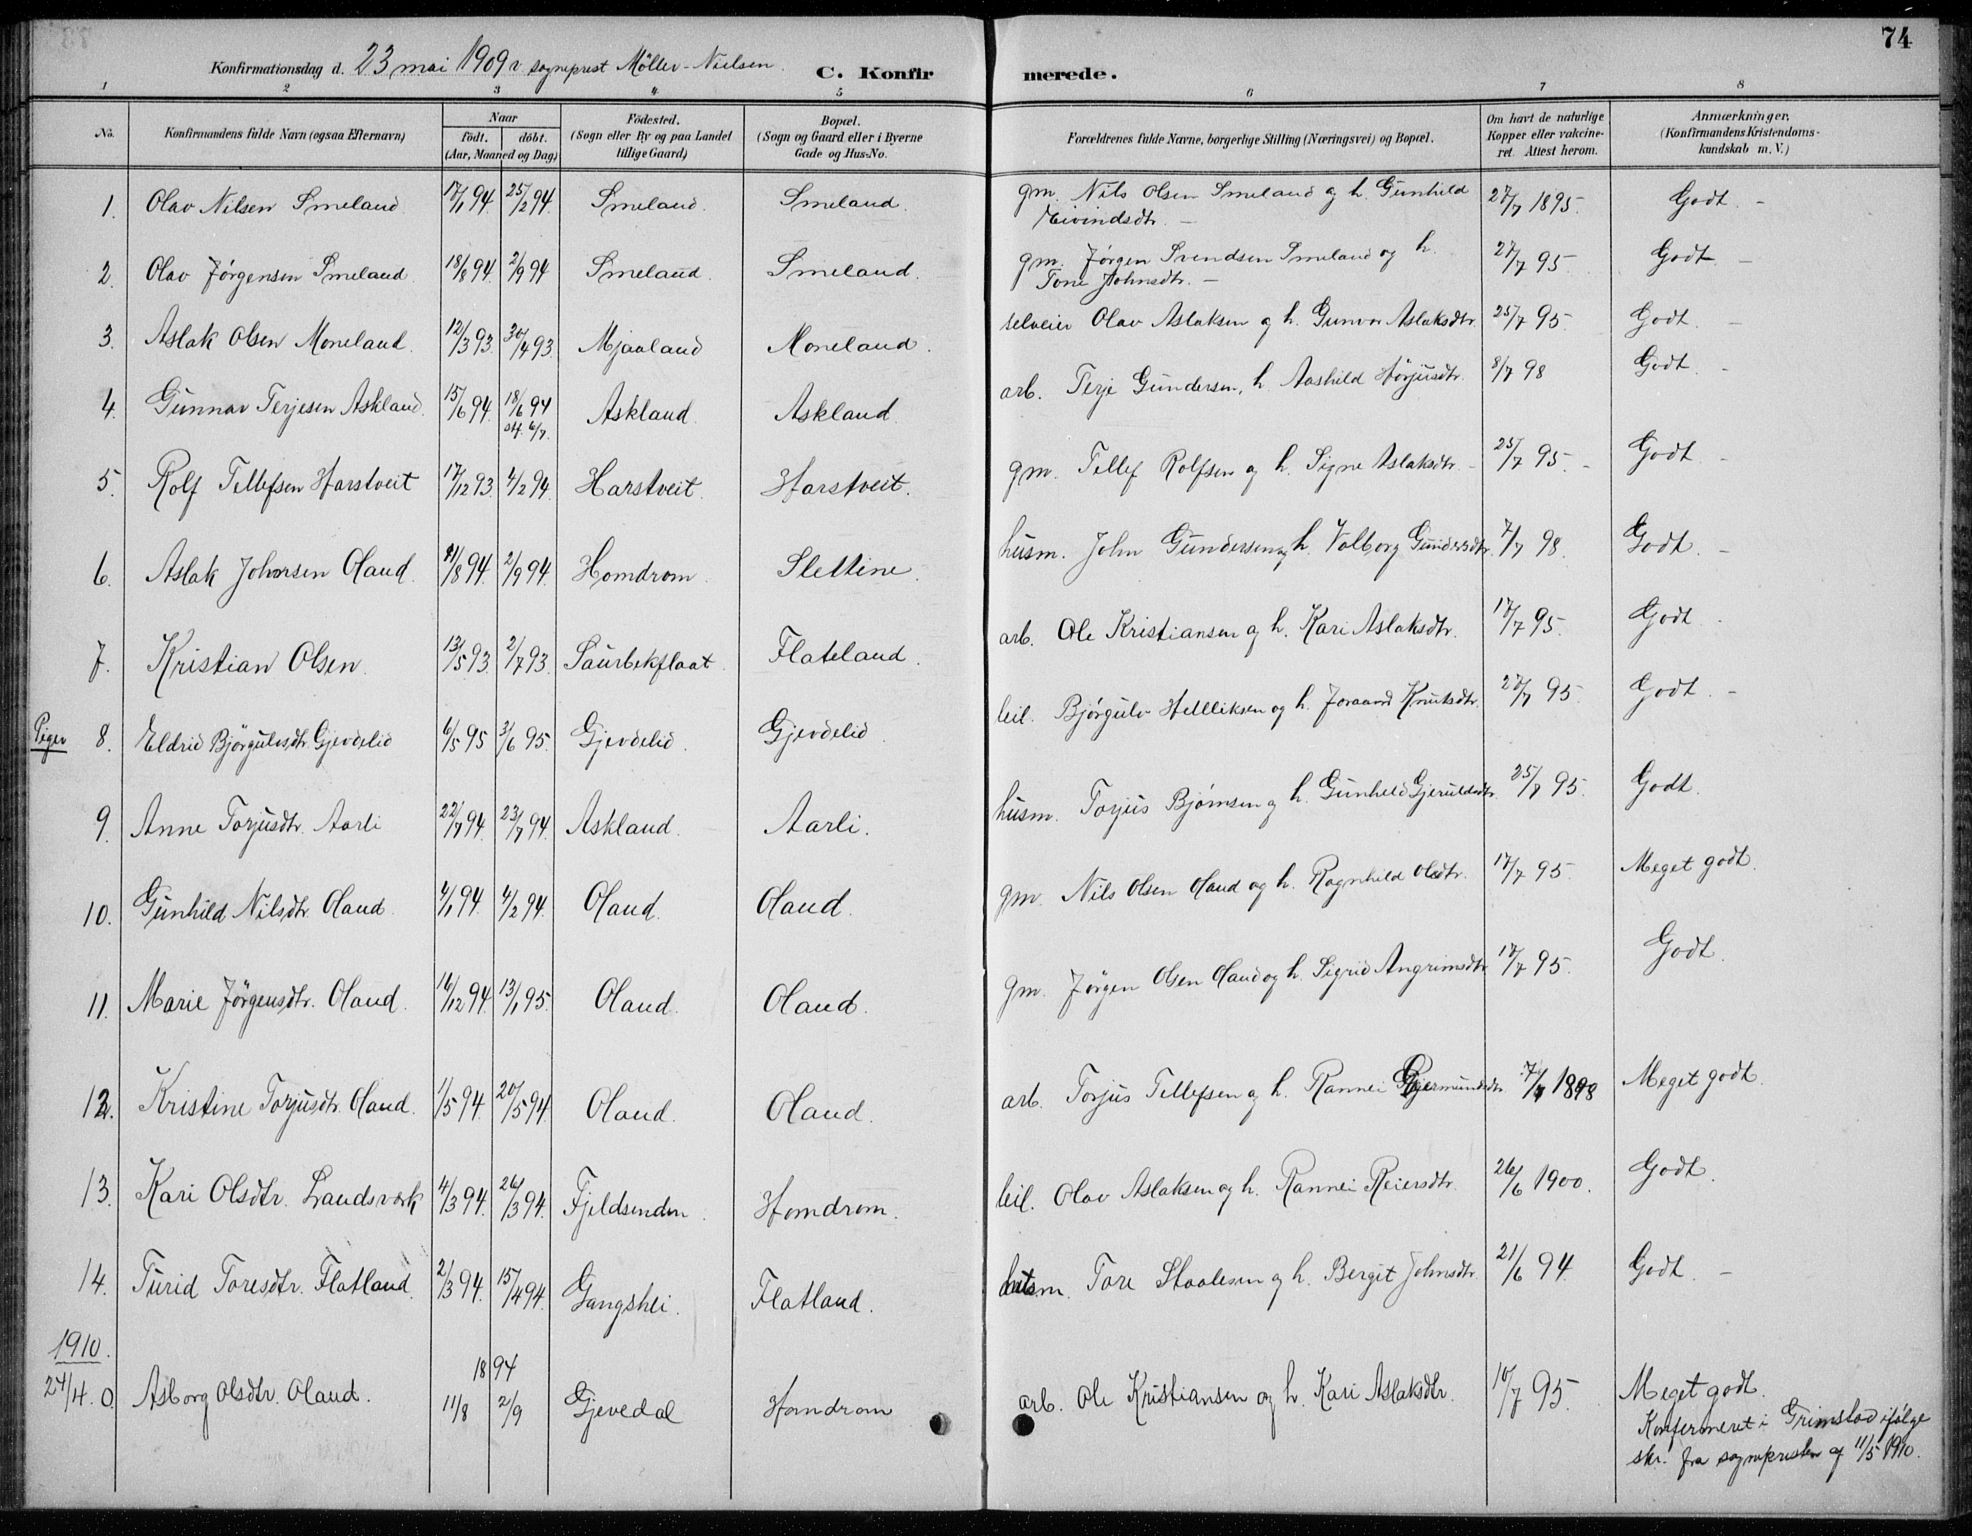 74
Konfirmationsdag d. 23 mai 1909 v sogneprest Möller-Nielsen. C. Konfirmerede.
1 2 3 4 5 6 7 8
No. Konfirmandens fulde Navn (ogsaa Efternavn) Naar født. døbt. (Aar, Maaned og Dag) Födested. (Sogn eller By og paa Landet tillige Gaard) Bopæl. (Sogn og Gaard eller i Byerne Gade og Hus-No. Forældrenes fulde Navne, borgerlige Stilling (Næringsvei) og Bopæl. Om havt de naturlige Kopper eller vakcineret. Attest herom. Anmærkninger, (Konfirmandens Kristendomskundskab m.V.)
1. Olav Nilsen Smeland 17/1 94. 25/2 94. Smeland. Smeland. gm. Nils Olsen Smeland og h. Gunhild Eivindsdtr. — 27/7 1895. Godt. —
2. Olav Jörgensen Smeland 18/8 94 2/9 94 Smeland. Smeland. gm. Jörgen Svendsen Smeland og h. Tone Johnsdtr. — 27/7 95. Godt. —
3. Aslak Olsen Moneland. 12/3 93. 30/4 93 Mjaaland Moneland. selveier Olav Aslaksen og h. Gunvor Aslaksdtr. 25/7 95. Godt. —
4. Gunnar Terjesen Askland. 15/6 94. 18/6 94 stf. 6/7. Askland. Askland. arb. Terje Gundersen, h. Aashild Törjusdtr. 8/7 98 Godt. —
5. Rolf Tellefsen Harstveit 17/12 93. 4/2 94. Harstveit. Harstveit. gm. Tellef Rolfsen og h. Signe Aslaksdtr. — 25/7 95. — Godt. —
6. Aslak Johnsen Oland. 11/8 94. 2/9 94. Homdrom. Slettine. husm. John Gundersen og h. Valborg Gundersdtr. 7/7 98. Godt. —
7. Kristian Olsen. 13/5 93. 2/7 93. Saurbekflaat. Flateland. arb. Ole Kristiansen og h. Kari Aslaksdtr. 17/7 95. Godt.
Piger 8. Eldrid Björgulvsdtr. Gjevdelid 6/5 95 3/6 95. Gjevdelid. Gjevdelid. leil. Björgulv Helliksen og h. Joraand Knutsdtr. 27/7 95. Godt. —
9. Anne Torjusdtr. Aarli 22/7 94. 23/7 94. Askland. Aarli. husm. Torjus Bjørnsen og h. Gunhild Gjeruldsdtr. 25/7 95. Godt.
10. Gunhild Nilsdtr. Oland. 4/1 94. 4/2 94. Oland. Oland. gm. Nils Olsen Oland og h. Ragnhild Olsdtr. 17/7 95. Meget godt.
11. Marie Jörgensdtr. Oland. 16/12 94. 13/1 95. Oland. Oland. gm. Jörgen Olsen Oland og h. Sigrid Angrimsdtr. 17/7 95. Godt.
12. Kristine Torjusdtr. Oland. 1/5 94. 20/5 94. Oland. Oland. arb. Torjus Tellefsen og h. Rannei Gjermundsdtr 7/7 1898 Meget godt.
13. Kari Olsdtr. Landsverk 4/3 94. 26/3 94. Fjeldsenden. Homdrom. leil. Olav Aslaksen og h. Rannei Reiersdtr. 26/6 1900. Godt.
14. Turid Toresdtr. Flatland. 2/3 94. 15/4 94. Gangshei. Flatland. husm. Tore Staalesen og h. Bergit Johnsdtr. 21/6 94. Godt. —
1910.
24/4. 0. Asborg Olsdtr. Oland. 1894 11/8 2/9 Gjevedal Homdrom arb. Ole Kristiansen og h. Kari Aslaksdtr. 10/7 95. Meget godt.
Konfermeret i Grimstad ifølge
skr. fra sognepresten af 11/5 1910.